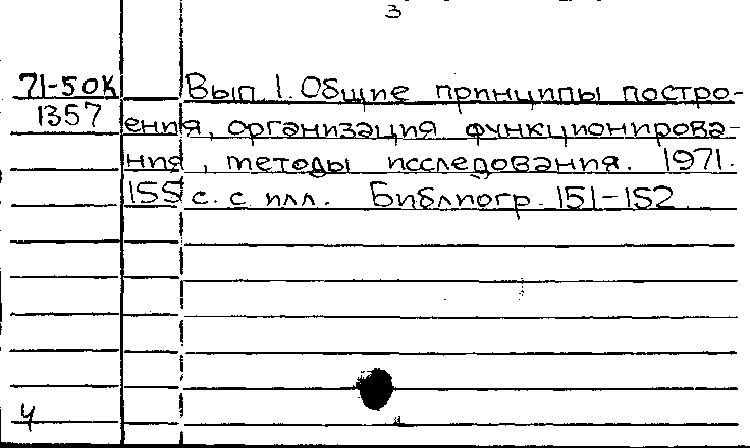 3
71-50К Вып. 1. Общие принципы построе-
1357 ения, организация функционирова-
ния, методы исследования. 1971.
155 с. с илл. Библиогр. 151-152.
4